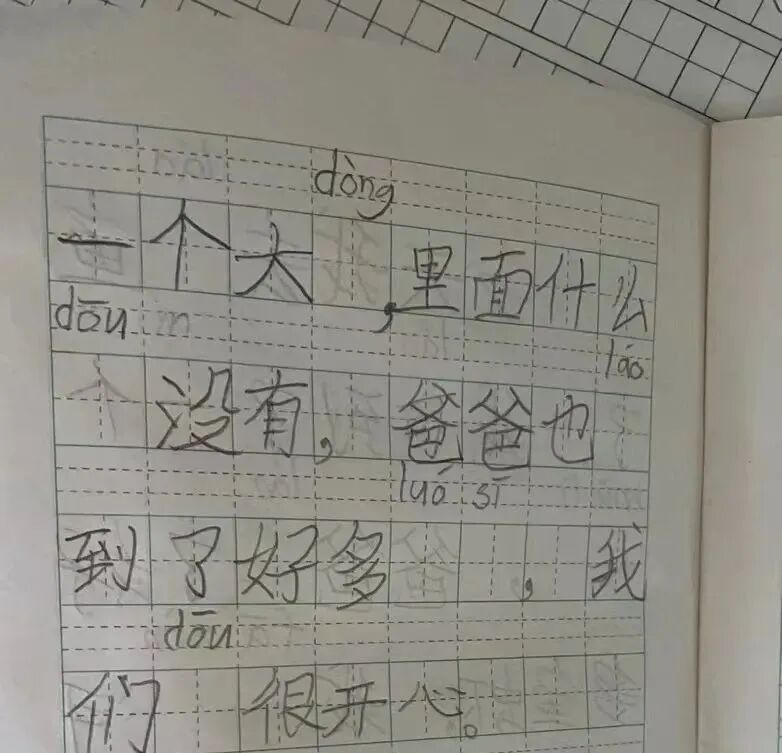 dòng
一个大，里面什么
dōu láo
没有，爸爸也
luó sī
到了好多，我
dōu
们很开心。